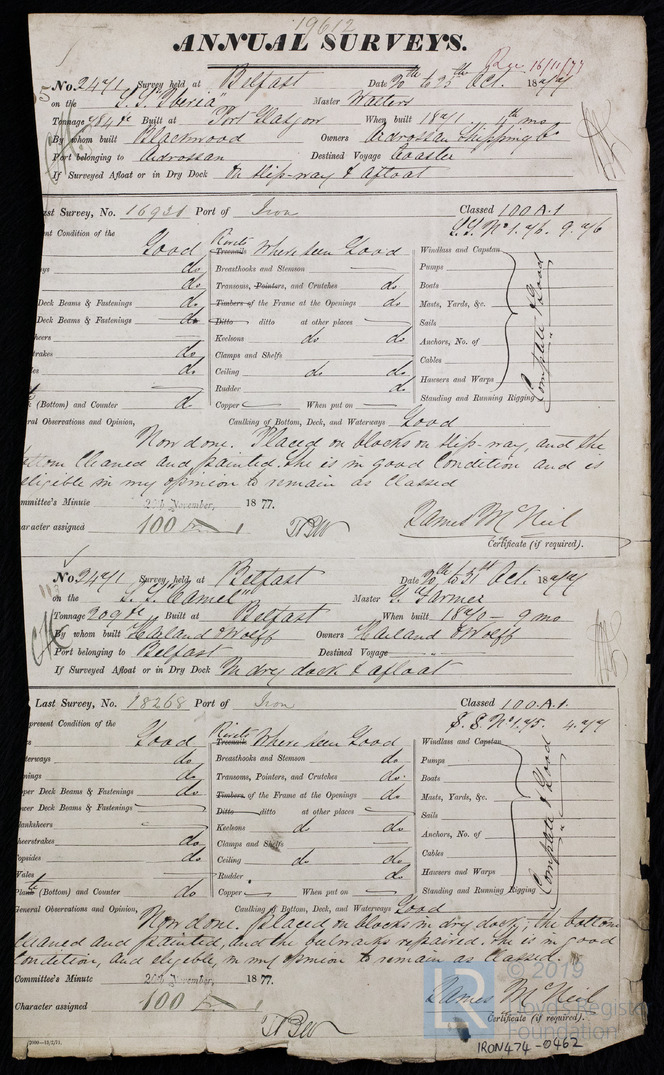 19612
ANNUAL SURVEYS.
Rec 16/11/77
No. 2471 Survey held at Belfast Date 20th to 25th Oct. 1877
on the S.S. "Iberia" Master Watters
Tonnage 484 Built at Port Glasgow When built 1871 11th mo
By whom built Blackwood Owners Ardrossan Shipping Co
Port belonging to Ardrossan Destined Voyage Coaster
If Surveyed Afloat or in Dry Dock On slip-way & afloat
ast Survey, No. 16921 Port of Iron Classed 100 A.1
S.S. No 1. 76. 9. 76
ent Condition of the Good Rivets Treenails Where seen Good Windlass and Capstan
ys do Breasthooks and Stemson Pumps
do Transoms, Pointers, and Crutches do Boats
Deck Beams & Fastenings do Timbers of the Frame at the Openings do Masts, Yards, &c.
Deck Beams & Fastenings do Ditto ditto at other places Sails
heers Keelsons do do Anchors, No. of
trakes do Clamps and Shelfs Cables
les do Ceiling do do Hawsers and Warps
Rudder do Standing and Running Rigging
(Bottom) and Counter do Copper When put on
Complete & Good
ral Observations and Opinion, Caulking of Bottom, Deck, and Waterways Good
Now done. Placed on blocks on slip-way, and the
bottom cleaned and painted. She is in good condition and is
eligible in my opinion to remain as classed
ommittee's Minute 20th November, 1877.
aracter assigned 100 A 1
James McNeil
Certificate (if required).
No. 2471 Survey held at Belfast Date 20th to 31st Oct. 1877
on the S.S. "Camel" Master G. Farmer
Tonnage 209 Built at Belfast When built 1870 - 9 mo
By whom built Harland & Wolff Owners Harland & Wolff
Port belonging to Belfast Destined Voyage
If Surveyed Afloat or in Dry Dock In dry dock & afloat
Last Survey, No. 18268 Port of Iron Classed 100.A.1.
S.S No 1. 75. 4.77
present Condition of the Good Rivets Treenails Where seen Good Windlass and Capstan
terways do Breasthooks and Stemson do Pumps
nings do Transoms, Pointers, and Crutches do Boats
pper Deck Beams & Fastenings do Timbers of the Frame at the Openings do Masts, Yards, &c.
ower Deck Beams & Fastenings Ditto ditto at other places Sails
lanksheers Keelsons do do Anchors, No. of
heerstrakes do Clamps and Shelfs Cables
opsides do Ceiling do do Hawsers and Warps
Wales Rudder do Standing and Running Rigging
Plate (Bottom) and Counter do Copper When put on
Complete & Good
General Observations and Opinion, Caulking of Bottom, Deck, and Waterways Good
Now done. Placed on blocks in dry dock, the bottom
cleaned and painted, and the bulwarks repaired. She is in good
condition, and eligible, in my opinion to remain as classed.
Committee's Minute 20th November, 1877.
Character assigned 100 A 1
James McNeil
Certificate (if required).
LR © 2019
Lloyd's Register
Foundation
IRON474-0462